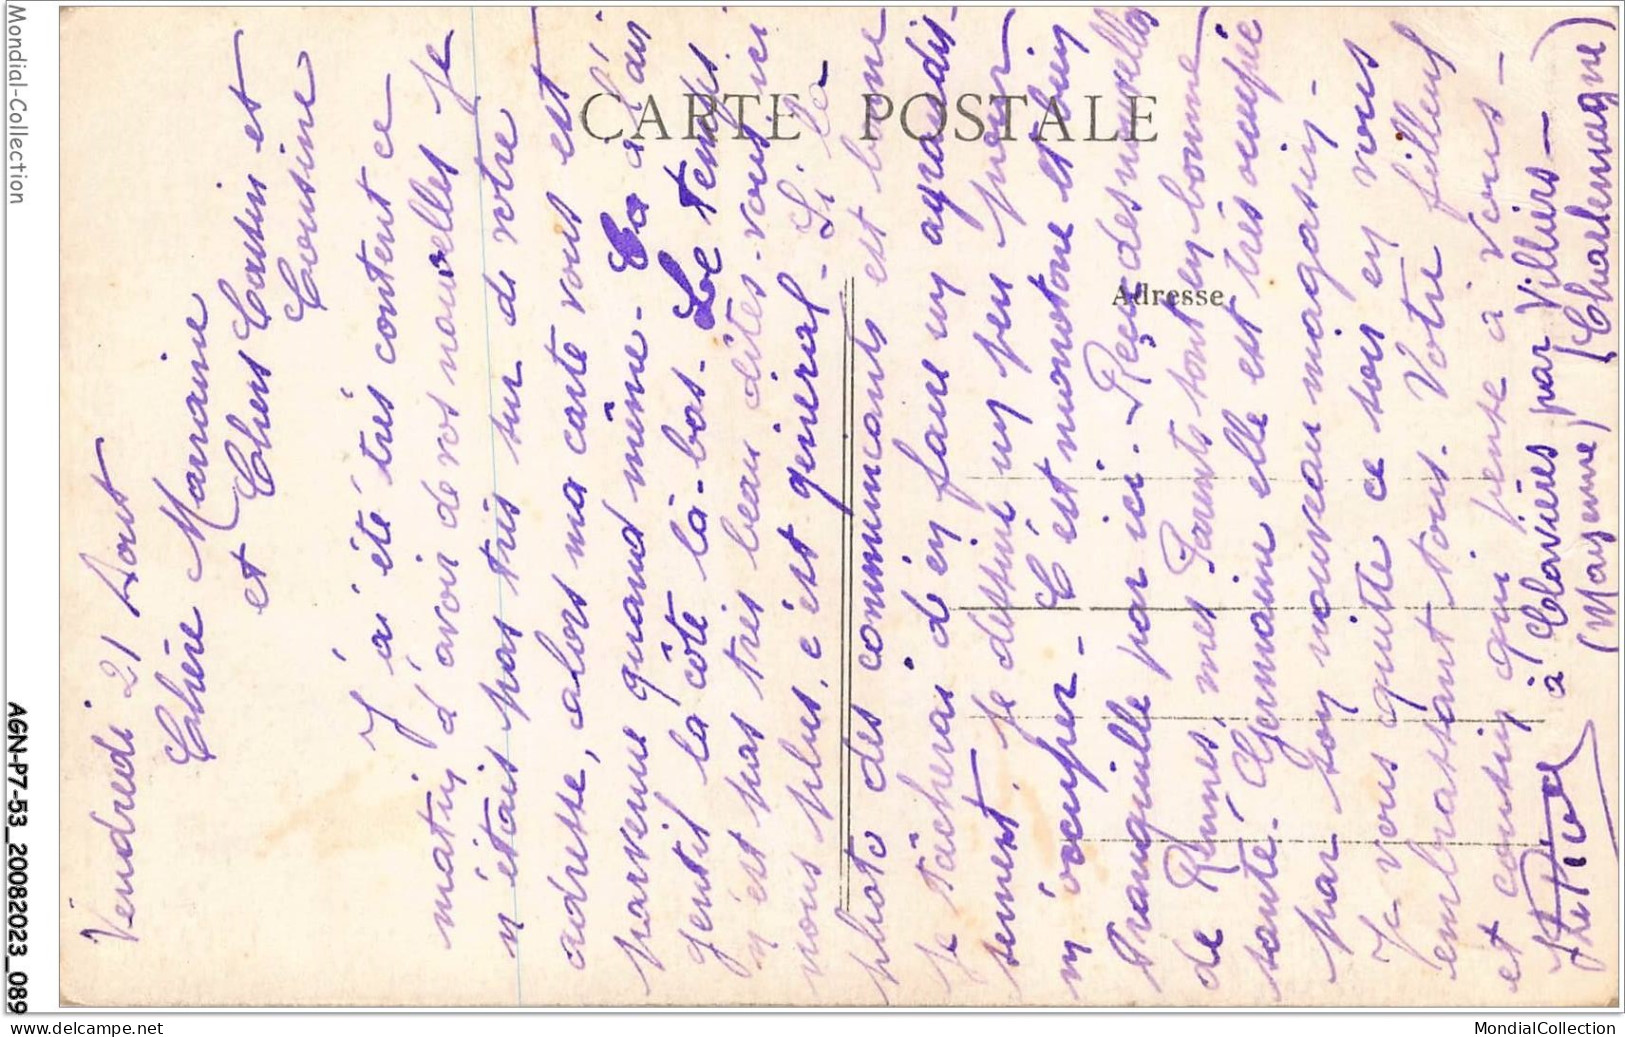 Vendredi 21 Aout
Chère Marraine
et Chers Cousin et
Cousine
J'ai été très content ce
matin d'avoir de vos nouvelles je
n'étais pas très sur de votre
adresse, alors ma carte vous est
parvenue quand même. Ca a l'air
gentil la côte là-bas. Le temps
n'est pas très beau dites-vous ici
nous plus, c'est général. Si la
photo des communiants est bonne
je tâcherai d'en faire un agrandis-
sement. je dessine un peu pour
m'occuper - C'est monotone et bien
tranquille par ici. Reçu des nouvelles
de Rennes, mes Parents sont en bonne
santé. Germaine elle est très occupée
par son nouveau magasin -
Je vous quitte ce soir en vous
embrassant tous. Votre filleul
et cousin qui pense à vous -
à Clavières par Villiers -
(Mayenne) (Charlemagne)
CARTE POSTALE
Adresse
Mondial-Collection
AGN-P7-53_20082023_089
delcampe.net
MondialCollection